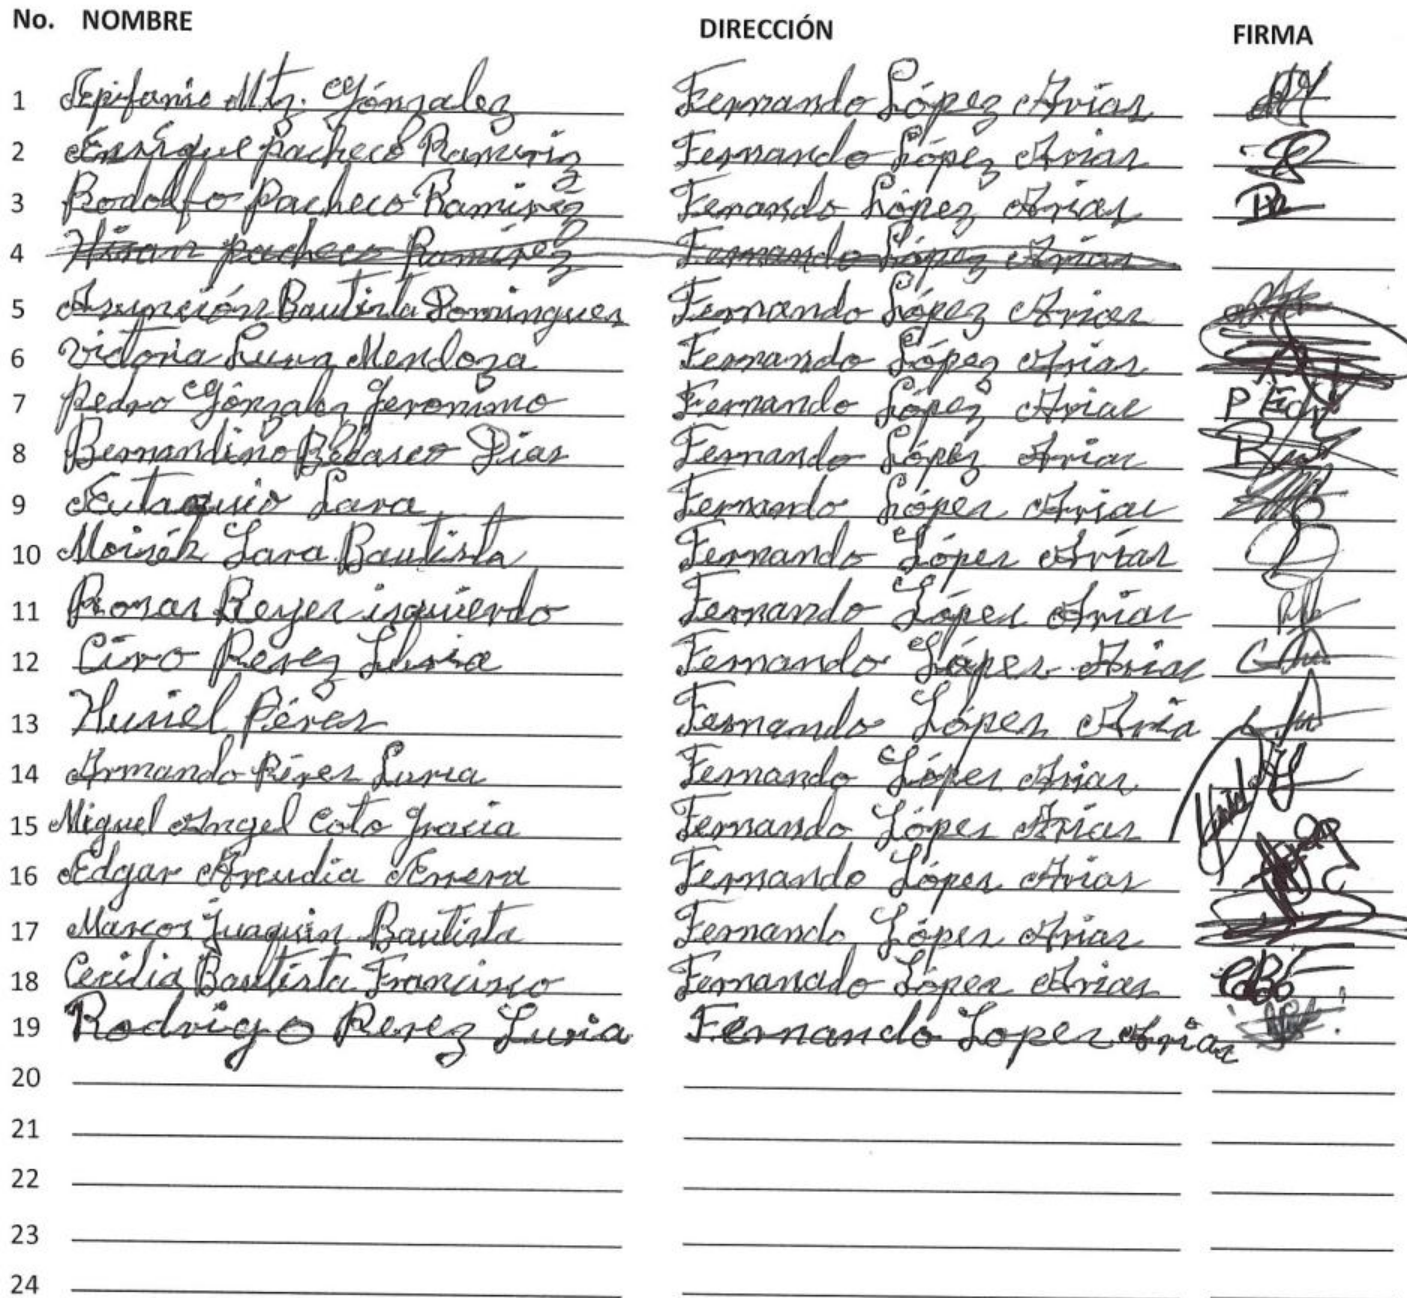 No. NOMBRE DIRECCIÓN FIRMA
1 Epifanio Mtz. Gónzalez Fernando López Arias
2 Enrique Pacheco Ramiriz Fernando López Arias
3 Rodolfo Pacheco Ramirez Fenando López Arias
4 Hiran Pacheco Ramírez Fernando López Arias
5 Asunción Bautista Domingues Fernando López Arias
6 Victoria Luna Mendoza Fernando López Arias
7 Pedro Gónzales Jeronimo Fernando López Arias
8 Bernandino Belasco Dias Fernando López Arias
9 Eutaquio Lara Fernando López Arias
10 Moisés Lara Bautista Fernando López Arías
11 Rosas Reyes isquierdo Fernando López Arias
12 Ciro Perez Luria Fernando López Arias
13 Huriel Pérez Fernando López Aria
14 Armando Pérez Luria Fernando López Arias
15 Miguel Angel Coto Gracia Fernando López Arias
16 Edgar Arcudia Errera Fernando López Arias
17 Marcos Juaquin Bautista Fernando López Arias
18 Cecilia Bautista Francisco Fernanado López Arias
19 Rodrigo Perez Luria Fernando Lopez Arias
20
21
22
23
24